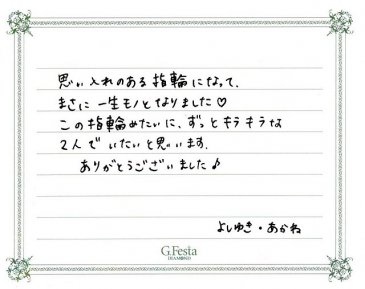 思い入れのある指輪になって、
まさに一生モノとなりました♡
この指輪みたいに、ずっとキラキラな
2人でいたいと思います。
ありがとうございました♪
よしゆき・あかね
G.Festa
DIAMOND